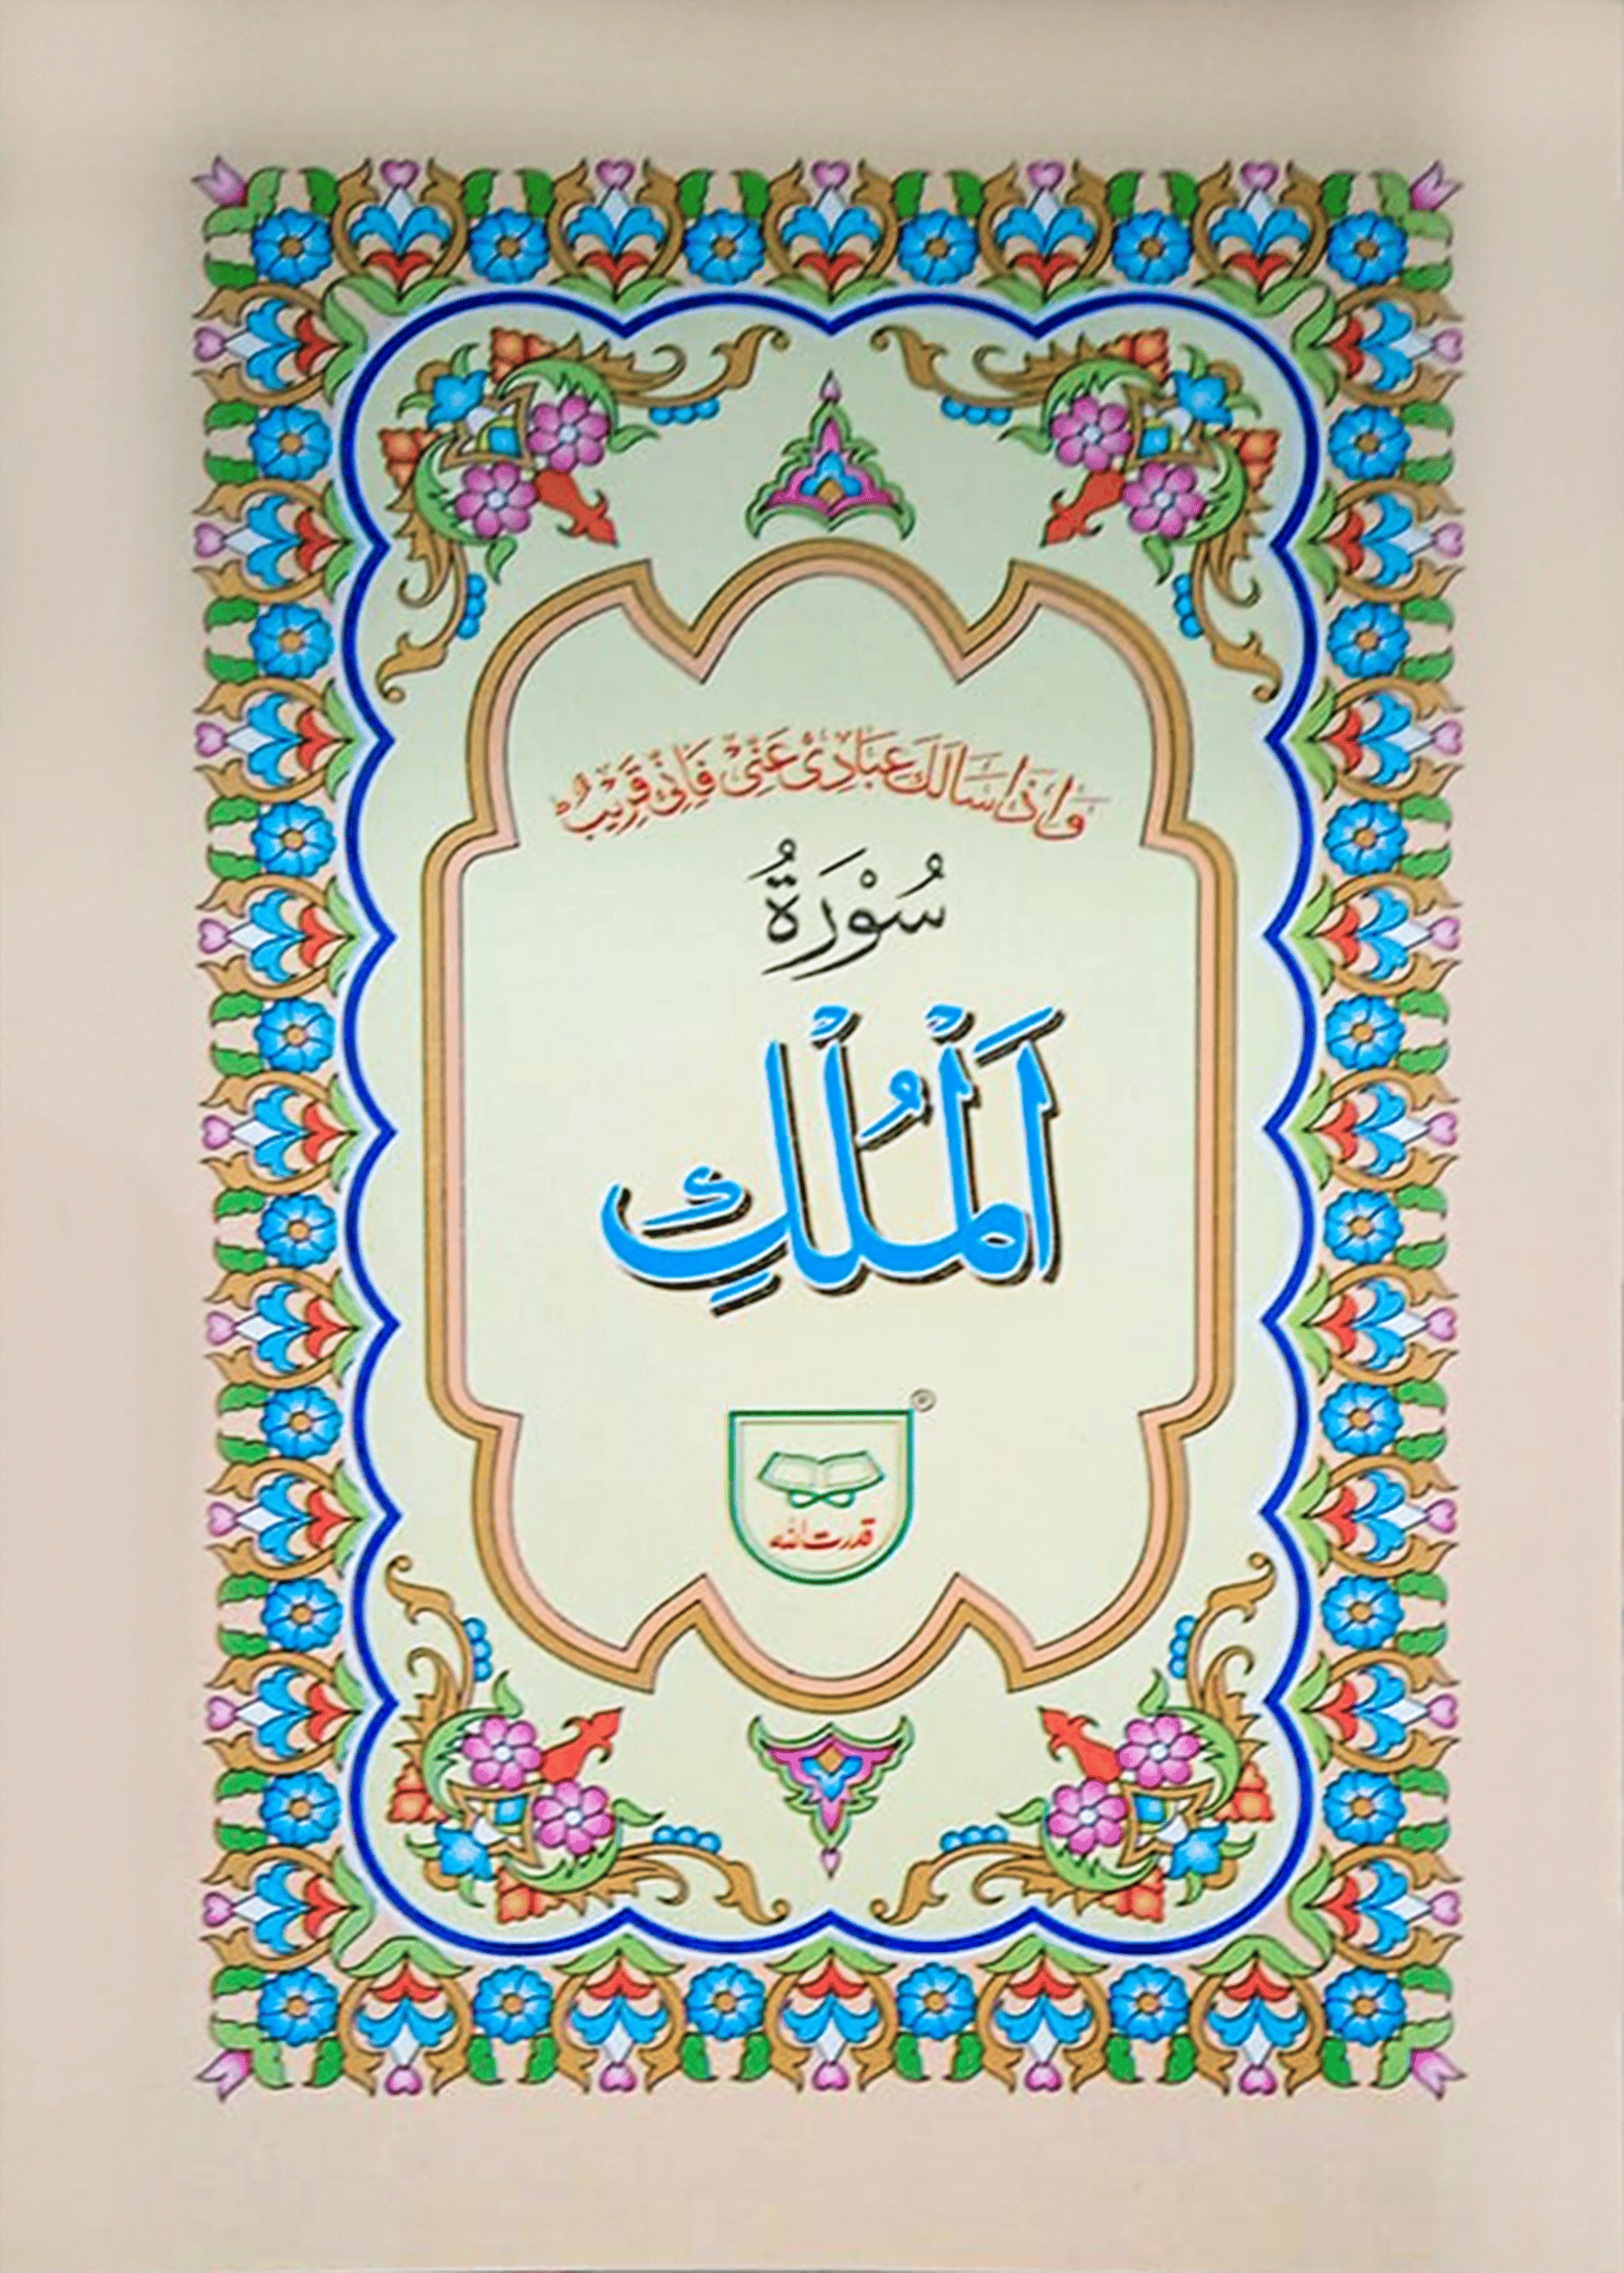 وَاِذَا سَاَلَكَ عِبَادِیْ عَنِّیْ فَاِنِّیْ قَرِیْبٌ ؕ
سُوْرَةُ
اَلْمُلْكِ
®
قدرت اللہ